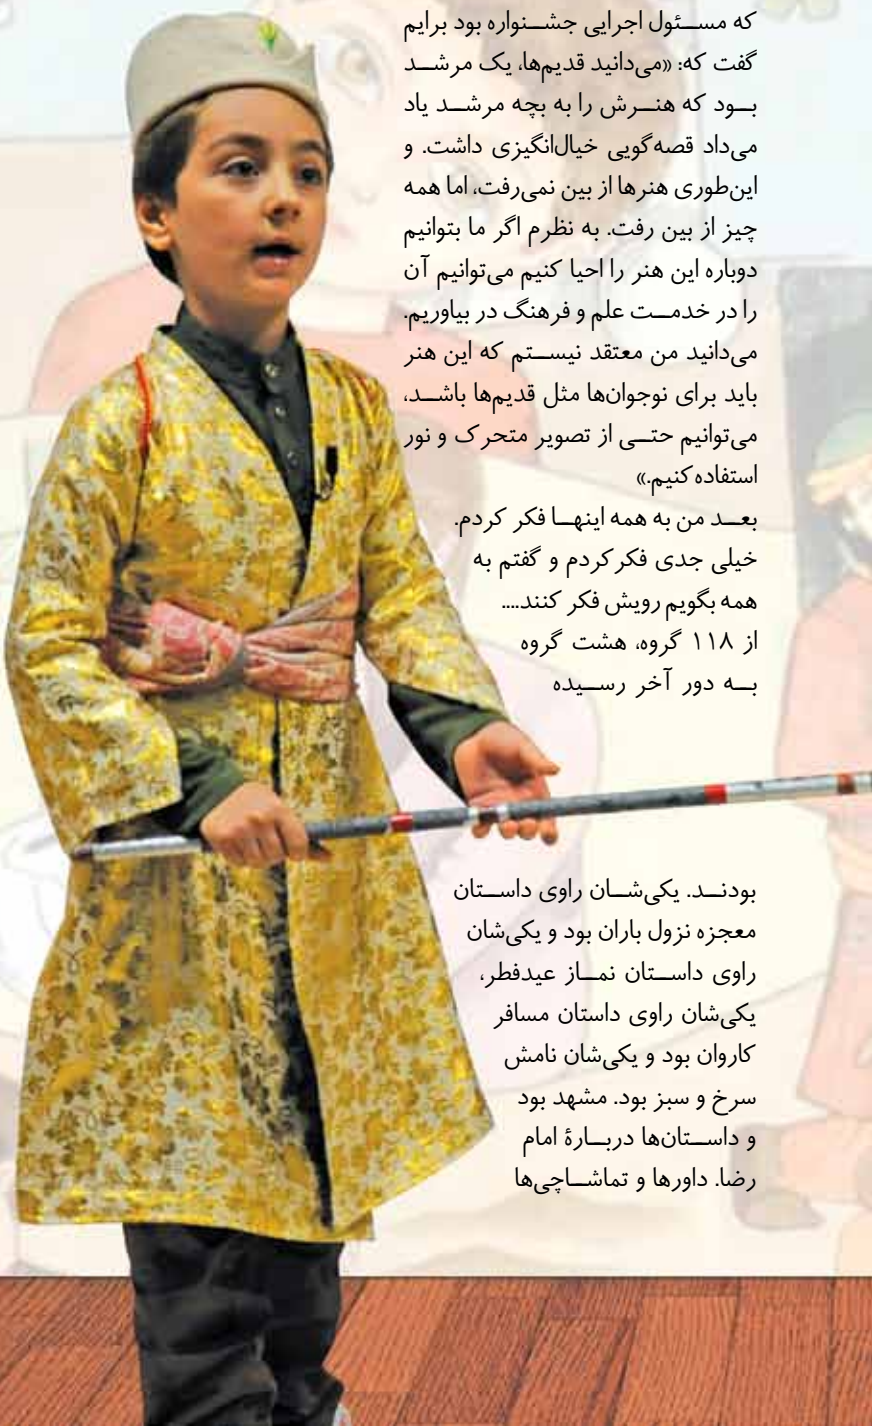 که مسئول اجرایی جشنواره بود برایم
گفت که: «می‌دانید قدیم‌ها، یک مرشد
بود که هنرش را به بچه مرشد یاد
می‌داد قصه‌گویی خیال‌انگیزی داشت. و
این‌طوری هنرها از بین نمی‌رفت، اما همه
چیز از بین رفت. به نظرم اگر ما بتوانیم
دوباره این هنر را احیا کنیم می‌توانیم آن
را در خدمت علم و فرهنگ در بیاوریم.
می‌دانید من معتقد نیستم که این هنر
باید برای نوجوان‌ها مثل قدیم‌ها باشد،
می‌توانیم حتی از تصویر متحرک و نور
استفاده کنیم.»
بعد من به همه اینها فکر کردم.
خیلی جدی فکر کردم و گفتم به
همه بگویم رویش فکر کنند....
از ۱۱۸ گروه، هشت گروه
به دور آخر رسیده
بودند. یکی‌شان راوی داستان
معجزه نزول باران بود و یکی‌شان
راوی داستان نماز عیدفطر،
یکی‌شان راوی داستان مسافر
کاروان بود و یکی‌شان نامش
سرخ و سبز بود. مشهد بود
و داستان‌ها دربارهٔ امام
رضا. داورها و تماشاچی‌ها